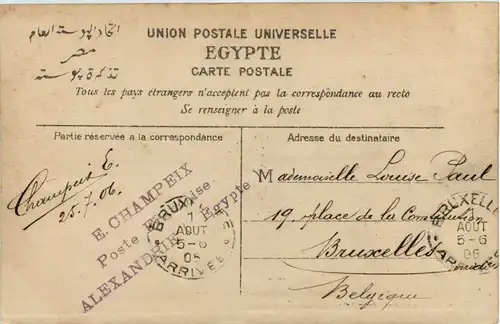 اتحاد البوستة العام
مصر
تذكرة بوستة
UNION POSTALE UNIVERSELLE
EGYPTE
CARTE POSTALE
Tous les pays étrangers n'acceptent pas la correspondance au recto
Se renseigner à la poste
Partie réservée a la correspondance
Adresse du destinataire
Champeix E.
25.7.06.
E. CHAMPEIX
Poste Française
ALEXANDRIE Egypte
BRUXELLES
7
AOUT
5-6
06
ARRIVEE
Mademoiselle Louise Paul
19, place de la Constitution
Bruxelles
Belgique
BRUXELLES
AOUT
5-6
06